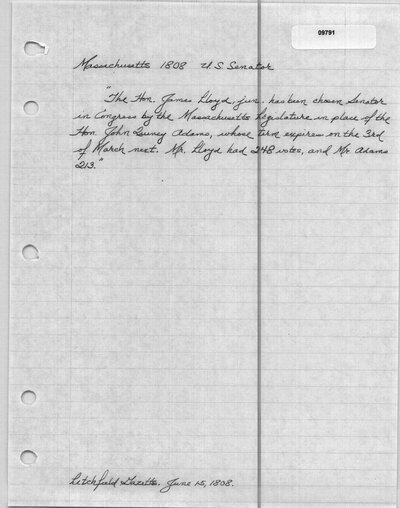 09791
Massachusetts 1808 U.S. Senator
"The Hon. James Lloyd, jun. has been chosen Senator
in Congress by the Massachusetts Legislature in place of the
Hon. John Quincy Adams, whose term expires on the 3rd
of March next. Mr. Lloyd had 248 votes, and Mr. Adams
213."
Litchfield Gazette. June 15, 1808.